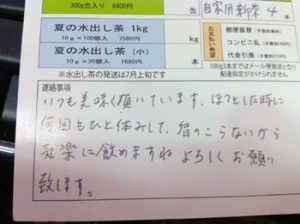 300g缶入り 8400円
自家用新茶 4本
夏の水出し茶 1kg
10g×100個入 7560円
夏の水出し茶 (小)
10g×20個入 1680円
※水出し茶の発送は7月上旬です
お支払い希望
郵便振替
コンビニ払
代金引換
100g3本まではメール便発送となり
配達指定がかけられません
連絡事項
いつも美味く頂いています。ほっとした時に
何回もひと休みして、胃のこらないから
気楽に飲めますね よろしくお願い
致します。